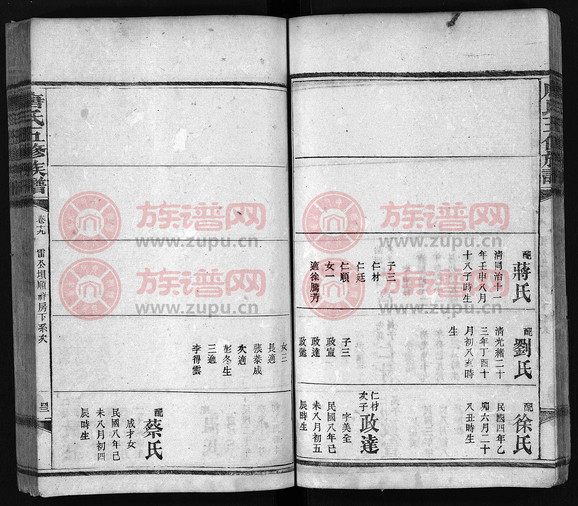 唐氏五修族譜
配蔣氏
清同治十一
年壬申八月
十八子時生
子三
仁材
仁廷
仁順
女一
適徐騰芳
配劉氏
清光緒二十
三年丁酉十
月初八亥時
生
子三
政宣
政達
政
配徐氏
民國四年乙
卯六月二十
八丑時生
仁材
次子政達
字美全
民國八年己
未八月初五
辰時生
唐氏五修族譜
卷十九
雷公壩順祥房下系次
女三
長適
張泰成
次適
彭冬生
三適
李得雲
配蔡氏
成才女
民國八年己
未八月初四
辰時生
族谱网
www.zupu.cn
族谱网
www.zupu.cn
族谱网
www.zupu.cn
族谱网
www.zupu.cn